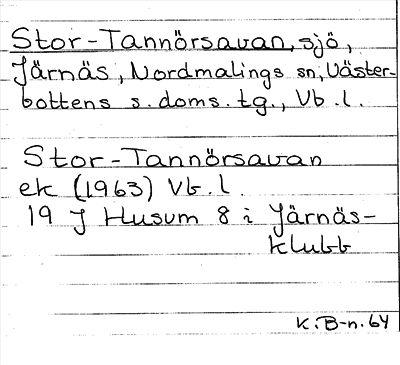 Stor-Tannörsavan, sjö,
Järnäs, Nordmalings sn, Väster-
bottens s. doms. tg., Vb. l.
Stor-Tannörsavan
ek (1963) Vb. l.
19 J Husum 8 i Järnäs-
klubb
K. B-n. 64